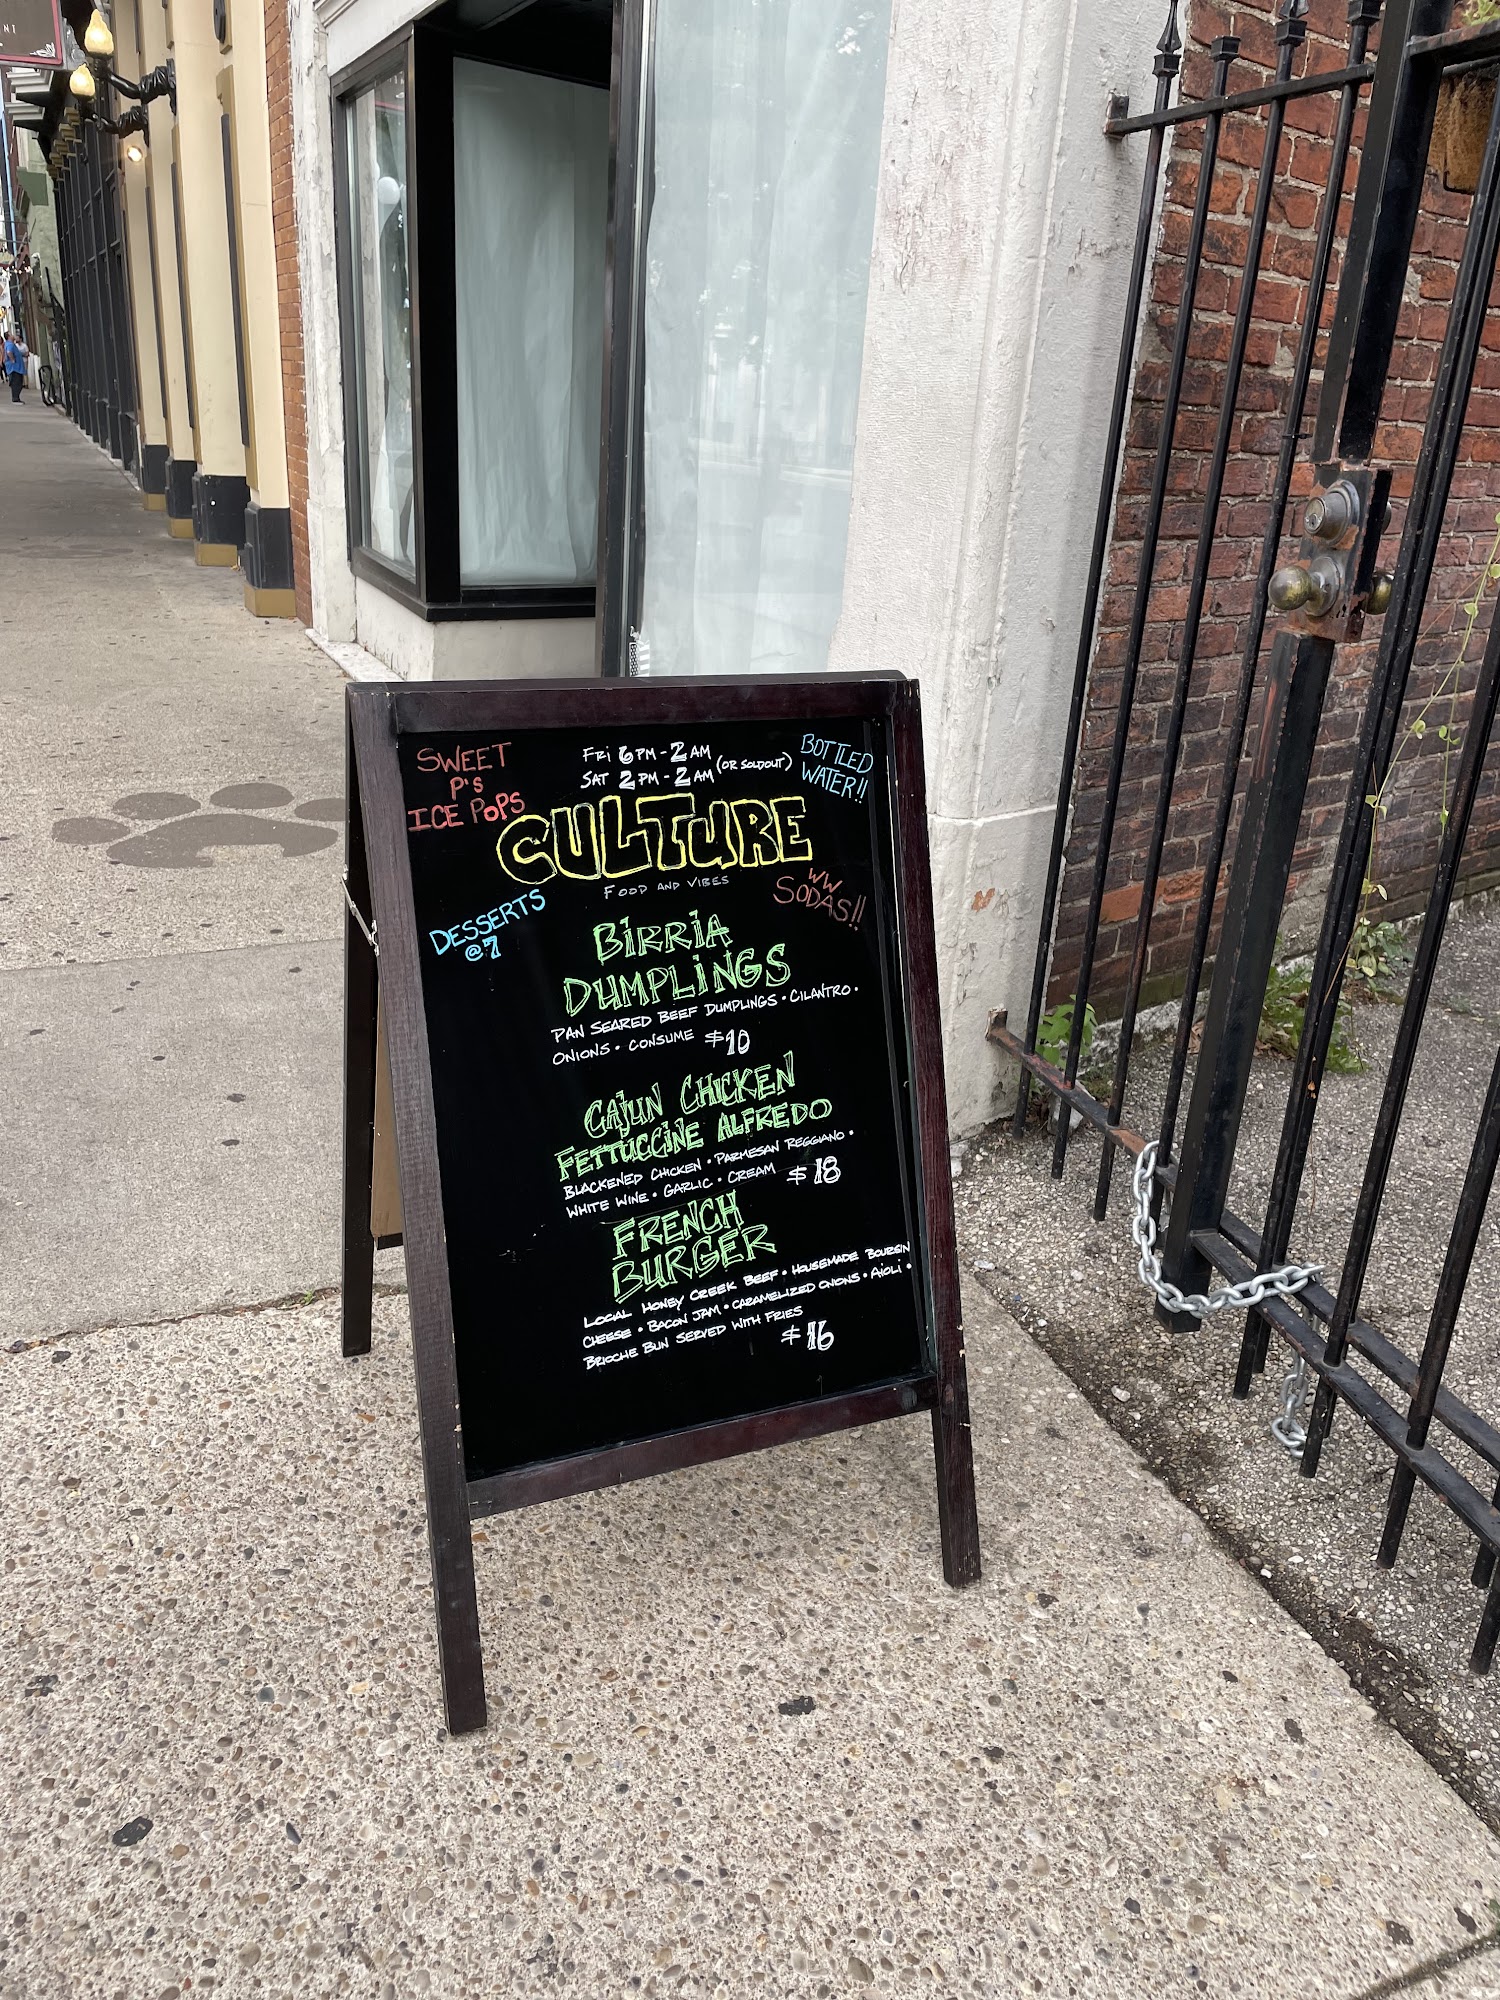 NT
SWEET
P's
ICE POPS
FRi 6 PM - 2 AM
SAT 2 PM - 2 AM
(OR SOLDOUT)
BOTTLED
WATER!!
CULTURE
FOOD AND VIBES
WW
SODAS!!
DESSERTS
@ 7
BIRRIA
DUMPLINGS
PAN SEARED BEEF DUMPLINGS • CILANTRO •
ONIONS • CONSUME $10
CAJUN CHICKEN
FETTUCCINE ALFREDO
BLACKENED CHICKEN • PARMESAN REGGIANO •
WHITE WINE • GARLIC • CREAM $18
FRENCH
BURGER
LOCAL HONEY CREEK BEEF • HOUSEMADE BOURSIN
CHEESE • BACON JAM • CARAMELIZED ONIONS • AIOLI •
BRIOCHE BUN SERVED WITH FRIES
$16